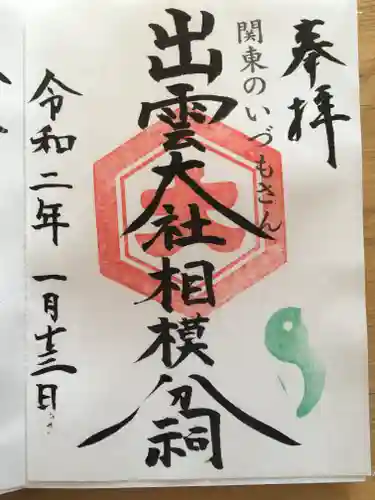 奉拝
関東のいづもさん
出雲大社相模分祠
令和二年一月十三日